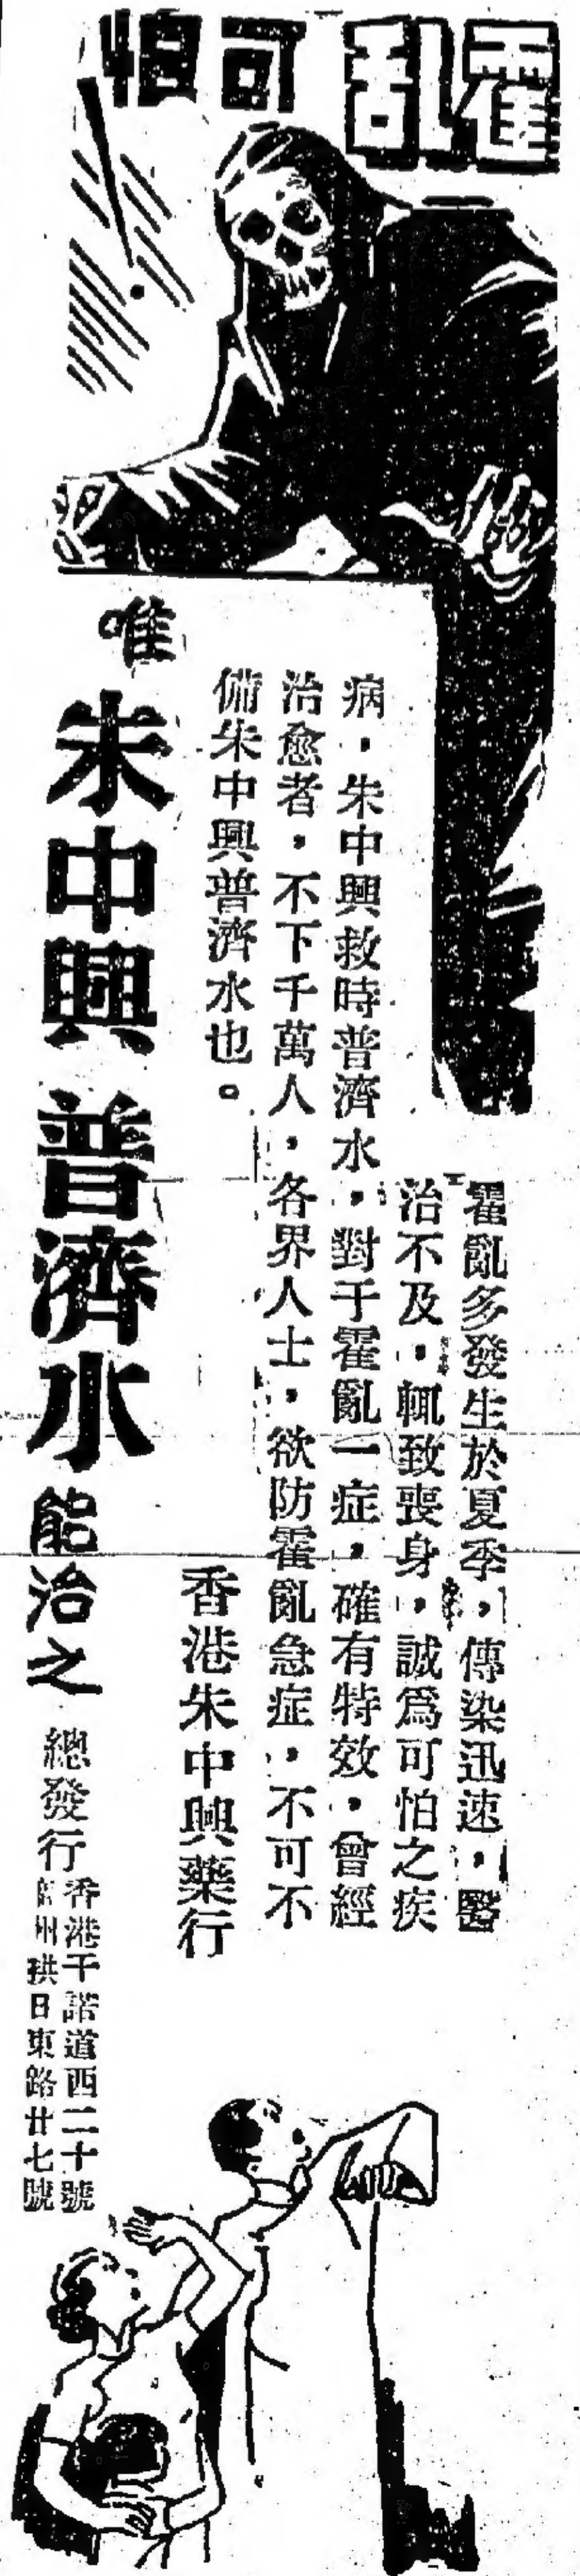 霍乱可怕
霍亂多發生於夏季，傳染迅速，醫
治不及，輒致喪身，誠爲可怕之疾
病，朱中興救時普濟水，對于霍亂一症，確有特效，曾經
治愈者，不下千萬人，各界人士，欲防霍亂急症，不可不
備朱中興普濟水也。
香港朱中興藥行
唯朱中興普濟水能治之
總發行
香港干諾道西二十號
州拱日東路廿七號